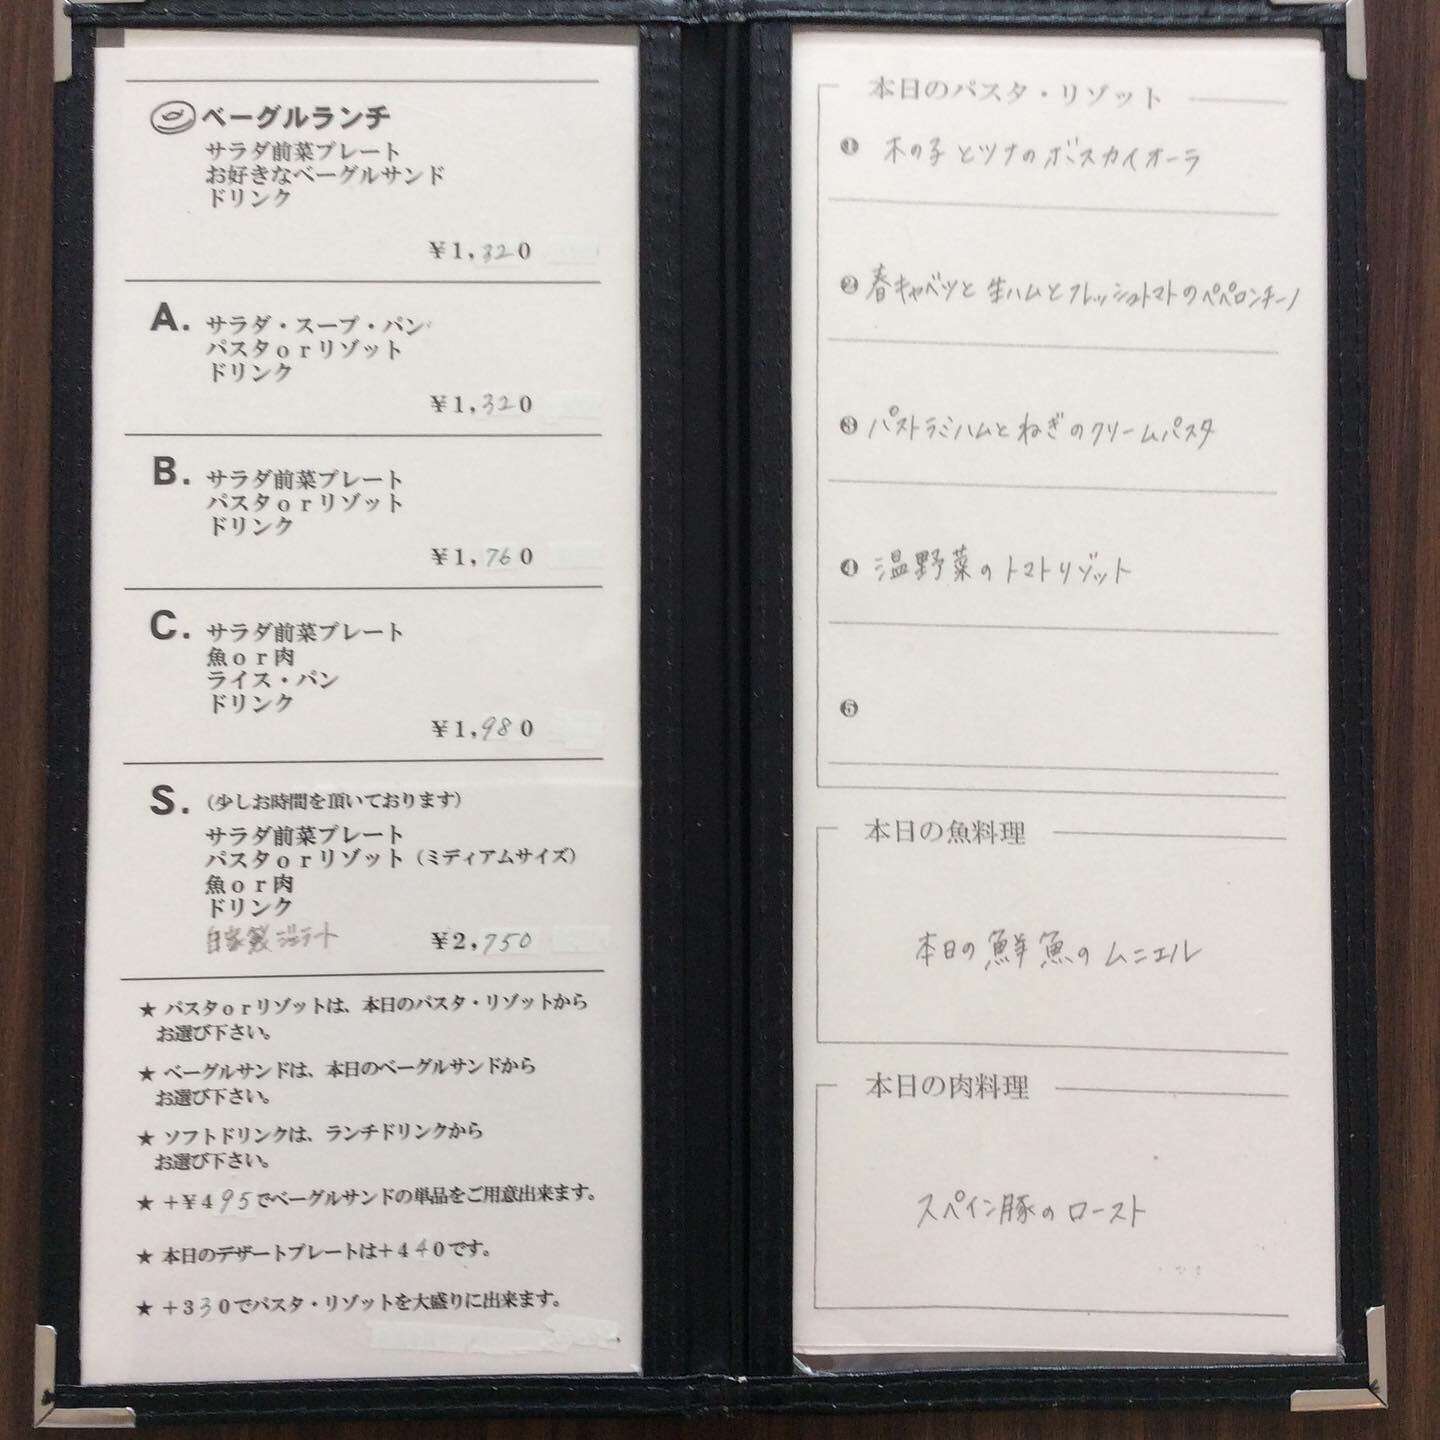 ベーグルランチ
サラダ前菜プレート
お好きなベーグルサンド
ドリンク
¥1,320
A. サラダ・スープ・パン
パスタorリゾット
ドリンク
¥1,320
B. サラダ前菜プレート
パスタorリゾット
ドリンク
¥1,760
C. サラダ前菜プレート
魚or肉
ライス・パン
ドリンク
¥1,980
S. (少しお時間を頂いております)
サラダ前菜プレート
パスタorリゾット(ミディアムサイズ)
魚or肉
ドリンク
自家製ジェラート ¥2,750
★ パスタorリゾットは、本日のパスタ・リゾットから
お選び下さい。
★ ベーグルサンドは、本日のベーグルサンドから
お選び下さい。
★ ソフトドリンクは、ランチドリンクから
お選び下さい。
★ +¥495でベーグルサンドの単品をご用意出来ます。
★ 本日のデザートプレートは+440です。
★ +330でパスタ・リゾットを大盛りに出来ます。
本日のパスタ・リゾット
❶ 木の子とツナのボスカイオーラ
❷ 春キャベツと生ハムとフレッシュトマトのペペロンチーノ
❸ パストラミハムとねぎのクリームパスタ
❹ 温野菜のトマトリゾット
❺
本日の魚料理
本日の鮮魚のムニエル
本日の肉料理
スペイン豚のロースト